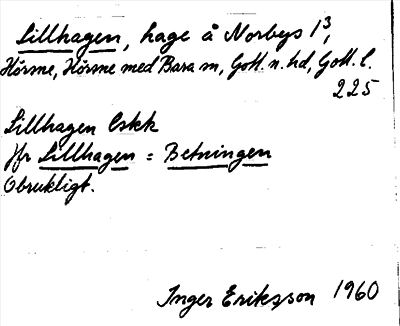 Lillhagen, hage å Norbys 1³,
Hörsne, Hörsne med Bara sn, Gotl. n. hd, Gotl. l.
225
Lillhagen Eskk
Jfr Lillhagen = Betningen
Obrukligt.
Inger Eriksson 1960